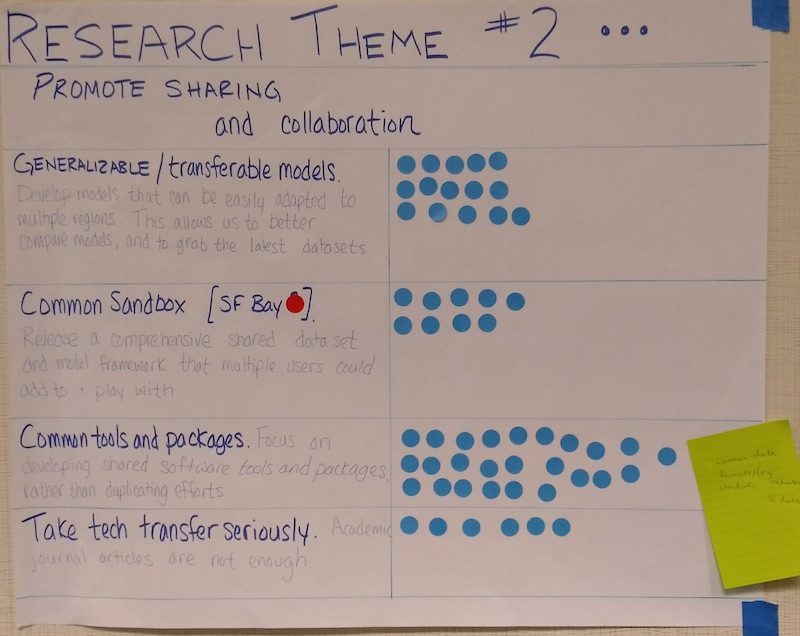 RESEARCH THEME #2 ...
PROMOTE SHARING
and collaboration
GENERALIZABLE / transferable models.
Develop models that can be easily adapted to
multiple regions. This allows us to better
compare models, and to grab the latest datasets
Common Sandbox [SF Bay].
Release a comprehensive shared data set
and model framework that multiple users could
add to + play with
Common tools and packages. Focus on
developing shared software tools and packages,
rather than duplicating efforts
Take tech transfer seriously. Academic
journal articles are not enough
common data